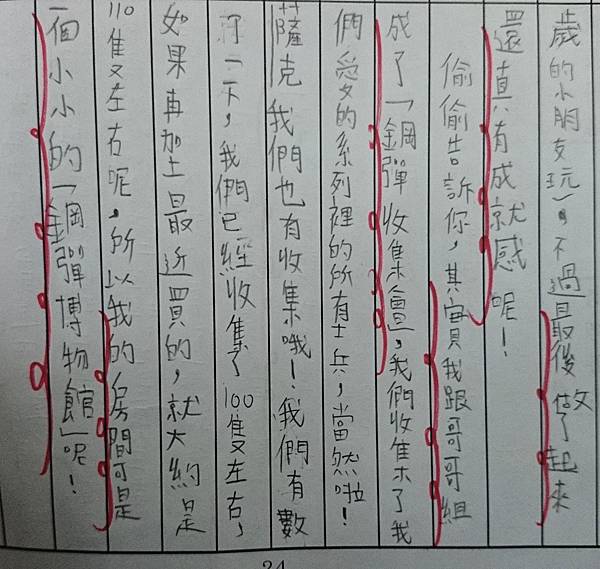 歲的小朋友玩)。不過最後做了起來
還真有成就感呢！
偷偷告訴你，其實我跟哥哥組
成了「鋼彈收集會」，我們收集了我
們愛的系列裡的所有士兵，當然啦！
薩克我們也有收集哦！我們有數
了一下，我們已經收集了100隻左右，
如果再加上最近買的，就大約是
110隻左右呢，所以我的房間可是
一個小小的「鋼彈博物館」呢！
24